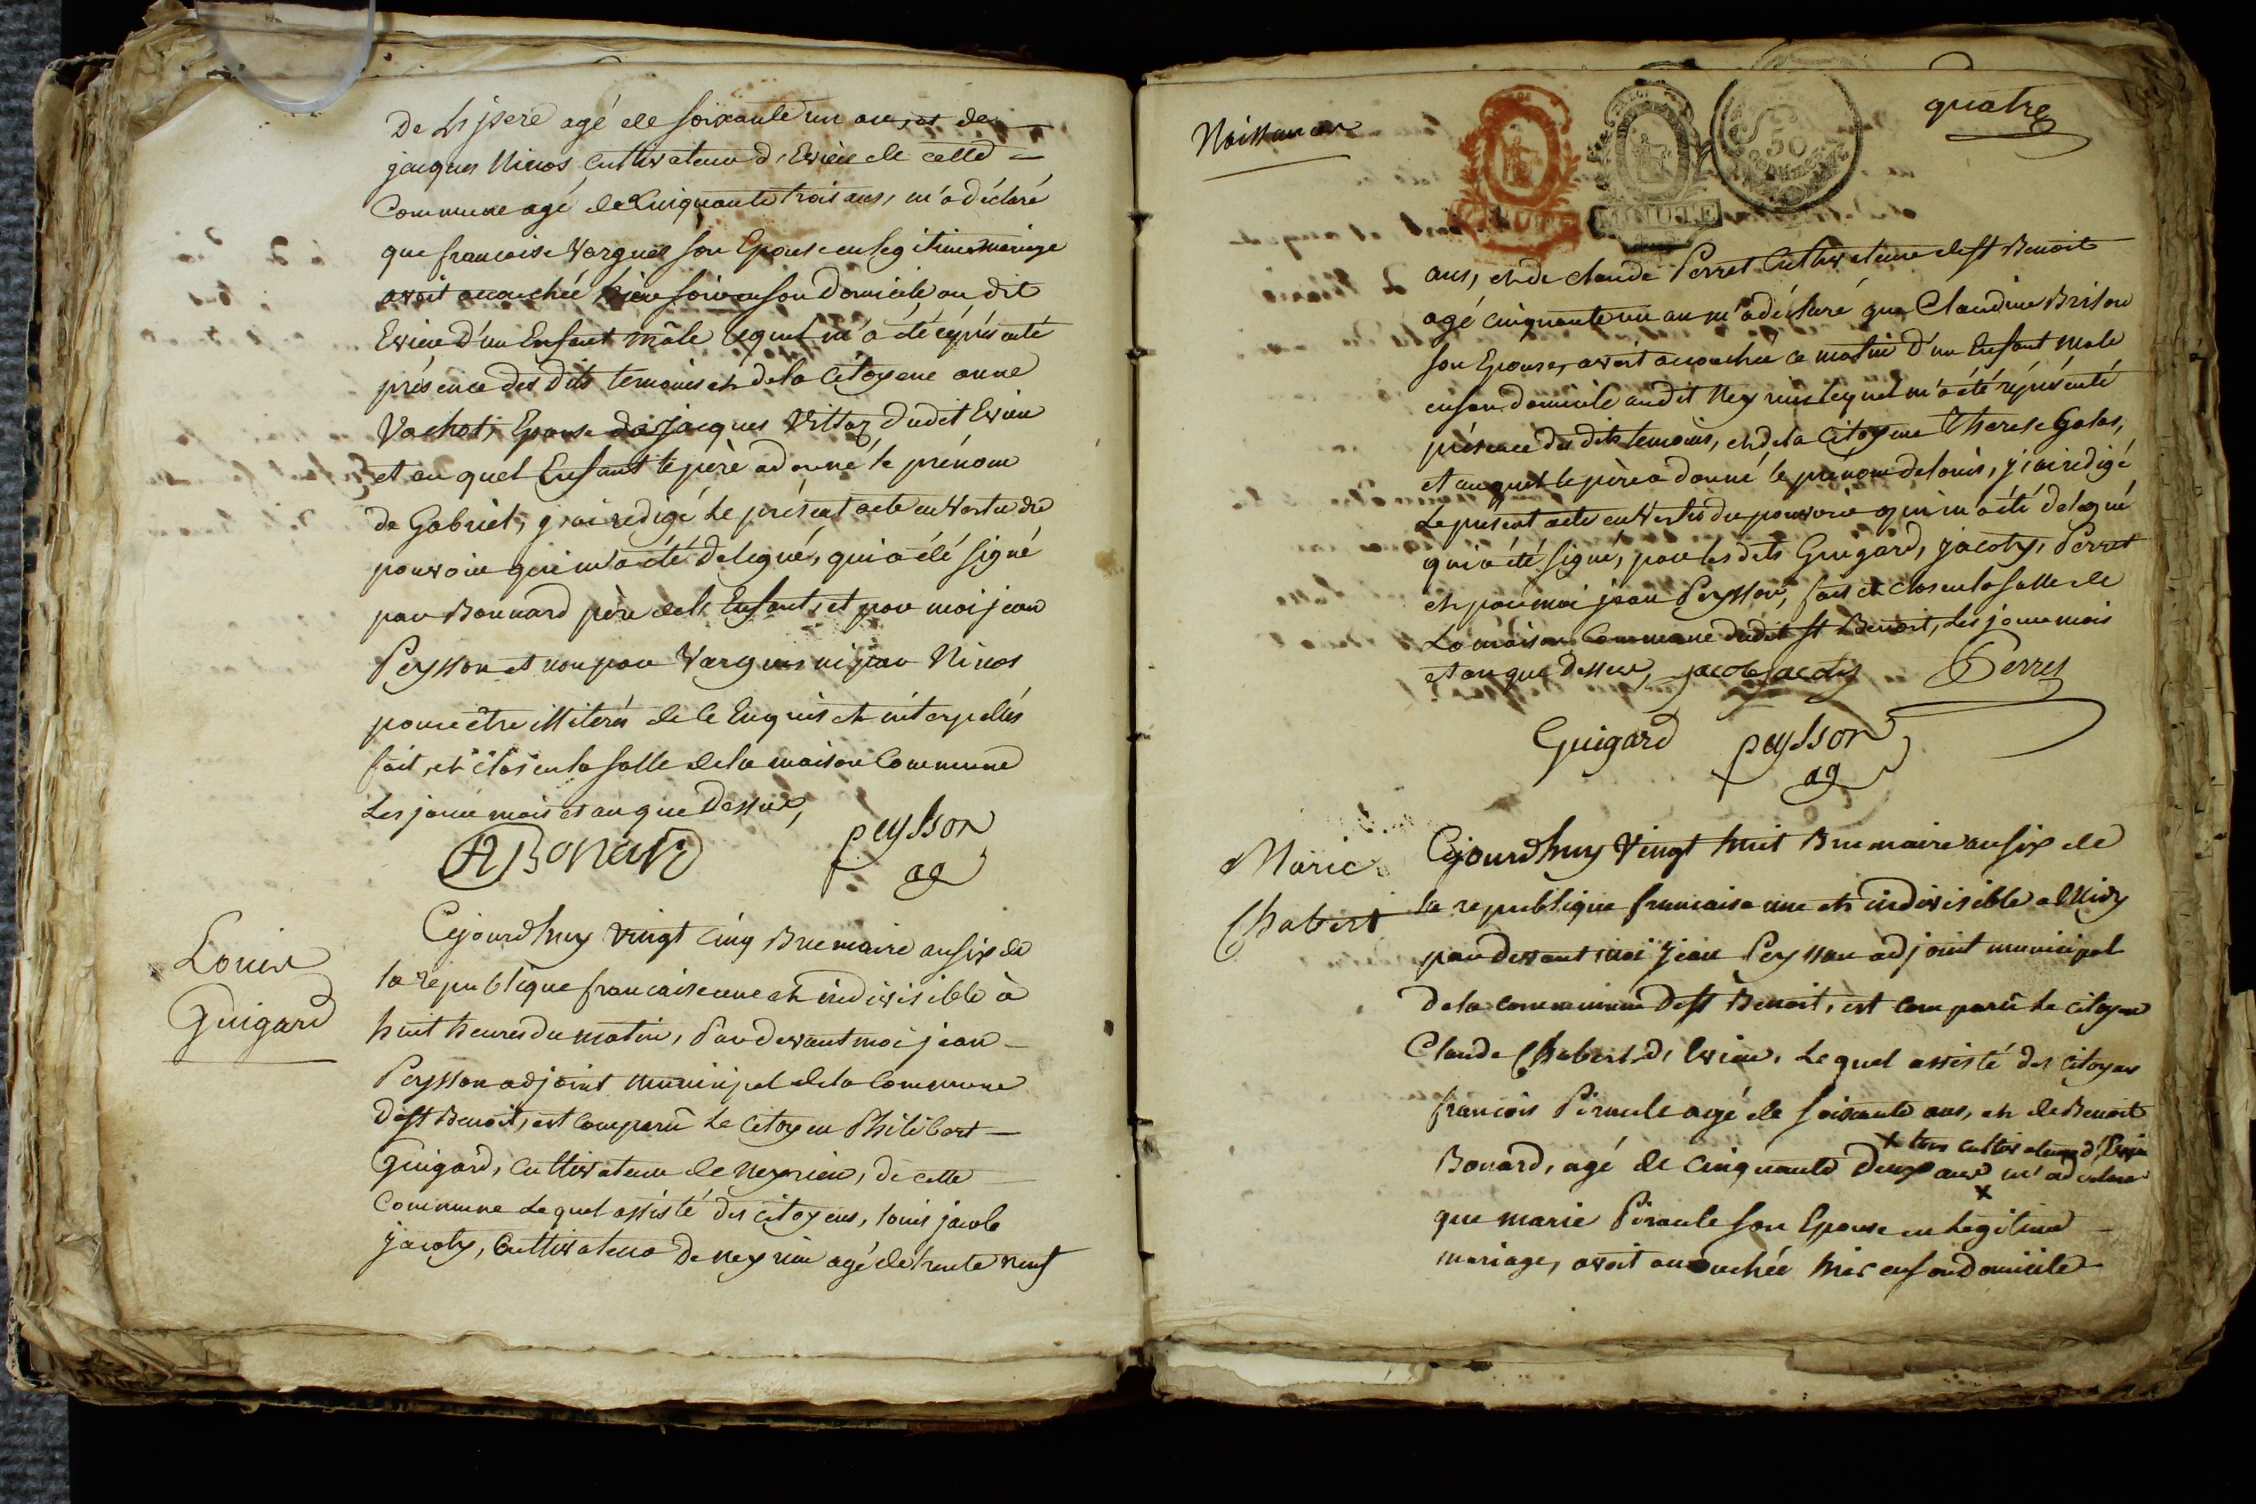 De Lisere agé de soixante un ans, et de
jacques Ninos Cultivateur d'Evieu de cette
Commune agé de Cinquante trois ans, m'a déclaré
que francoise Vargues son Epouse en legitime mariage
avoit accouchée hier soir en son Domicile au dit
Evieu d'un Enfant mâle lequel m'a été représenté
présence des dits temoins et de la Citoyene anne
Vachot, Epouse de jacques Vittoz dudit Evieu
et au quel Enfant le père a donné le prénom
de Gabriel, j'ai redigé le présent acte en vertu du
pouvoir qui m'a été delegué, qui a été signé
par Bonnard père de l'Enfant, et par moi jean
Peysson et non par Vargues ni par Ninos
pour être illiterés de ce Enquis et interpellés
fait, et clos en la salle de la maison Commune
Les jour mois et an que Dessus,
Bonard peysson
ag
Louis
Guigard
Cejourdhuy vingt cinq Brumaire an six de
la republique francaise une et indivisible à
huit heures du matin, Pardevant moi jean
Peysson adjoint municipal de la Commune
de St Benoit, est Comparû Le Citoyen Philibert
Guigard, Cultivateur de neyrieu, de cette
Commune Lequel assisté des Citoyens, louis jacob
jacoty, Cultivateur De neyrieu agé de trente neuf
Naissances
quatre
50
MINUTE
ans, et de claude Perret Cultivateur de St Benoit
agé cinquante un an m'a déclaré que Claudine Brison
son Epouse, avoit accouchée ce matin d'un Enfant male
en son domicile audit Neyrieu lequel m'a été représenté
présence des dits temoins, et de la Citoyene Therese Galos,
et auquel le père a donné le prénom de louis, j'ai redigé
Le présent acte en Vertu du pouvoir qui m'a été delegué
qui a été signé, par les dits Guigard, jacoty, Perret
et par moi jean Peysson, fait et clos en la salle de
La maison Commune dudit St Benoit, Les jour mois
et an que Dessus, jacob jacoty Perret
Guigard peysson
ag
Marie
Chabert
Cejourdhuy Vingt huit Brumaire an six de
la republique francaise une et indivisible a Midy
pardevant moi jean Peysson adjoint municipal
de la commune de St Benoit, est comparû Le citoyen
Claude Chabert d'Evieu, Lequel assisté des citoyens
francois Piraule agé de soixante ans, et de Benoit
x tous cultivateurs d'Evieu
Bonard, agé de cinquante Deux ans x m'a déclaré
que marie Piraule son Epouse en Legitime
mariage, avoit accouchée hier en son domicile